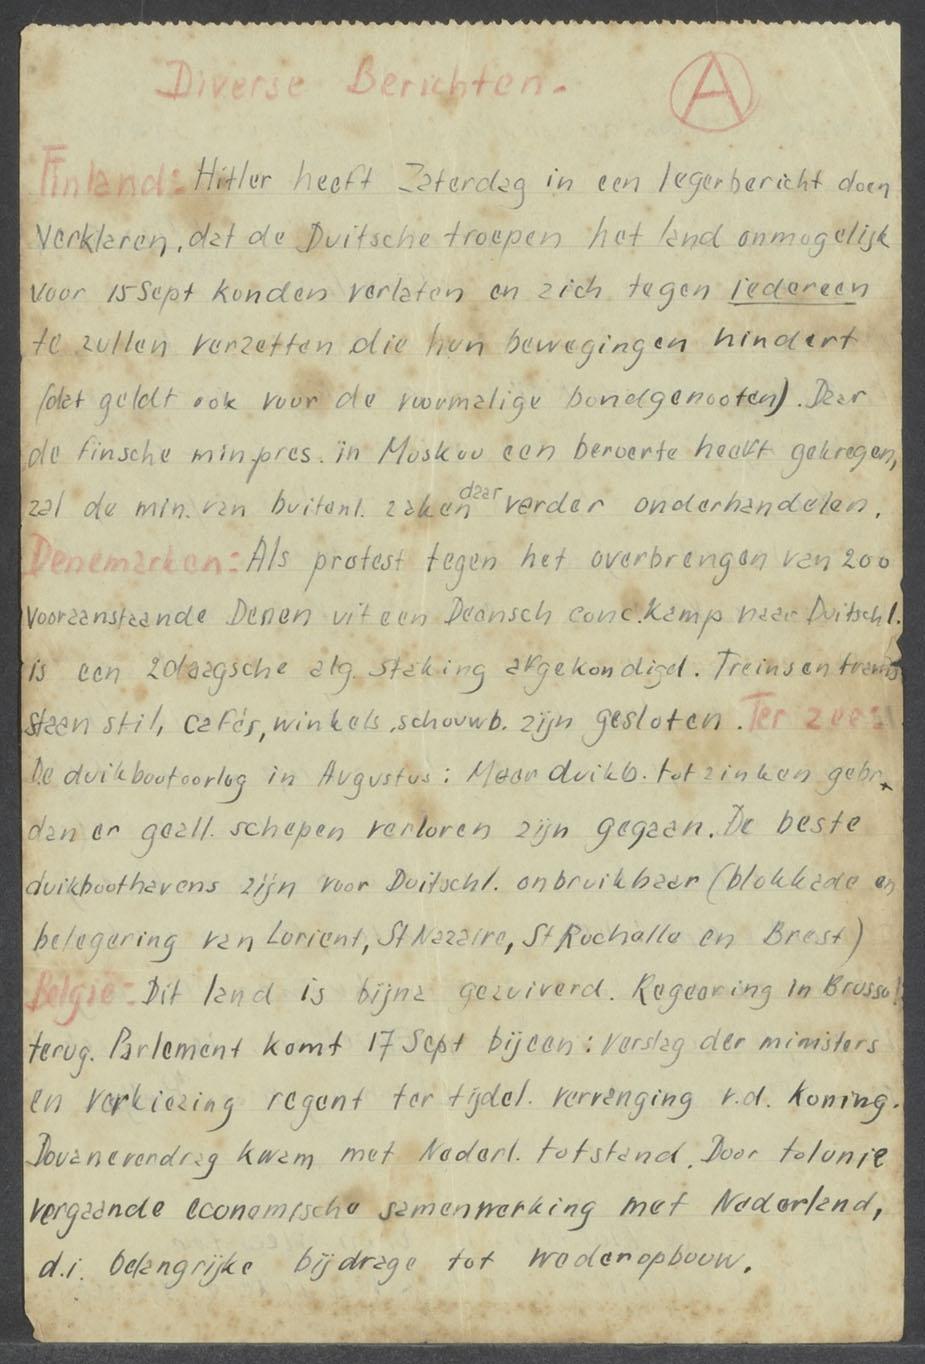 Diverse Berichten. A
Finland: Hitler heeft Zaterdag in een legerbericht doen
verklaren, dat de Duitsche troepen het land onmogelijk
voor 15 Sept konden verlaten en zich tegen iedereen
te zullen verzetten die hun bewegingen hindert
(dat geldt ook voor de voormalige bondgenooten). Daar
de Finsche min.pres. in Moskou een beroerte heeft gekregen,
zal de min. van buitenl. zaken daar verder onderhandelen.
Denemarken: Als protest tegen het overbrengen van 200
vooraanstaande Denen uit een Deensch conc.kamp naar Duitschl.
is een 2daagsche alg. staking afgekondigd. Treins en trams
staan stil, cafés, winkels, schouwb. zijn gesloten. Ter zee:
De duikbootoorlog in Augustus: Meer duikb. tot zinken gebr.
dan er geall. schepen verloren zijn gegaan. De beste
duikboothavens zijn voor Duitschl. onbruikbaar (blokkade en
belegering van Lorient, St Nazaire, St Rochelle en Brest)
België: Dit land is bijna gezuiverd. Regeering in Brussel
terug. Parlement komt 17 Sept bijeen: verslag der ministers
en verkiezing regent ter tijdel. vervanging v.d. Koning.
Douaneverdrag kwam met Nederl. totstand. Door tolunie
vergaande economische samenwerking met Nederland,
d.i. belangrijke bijdrage tot wederopbouw.